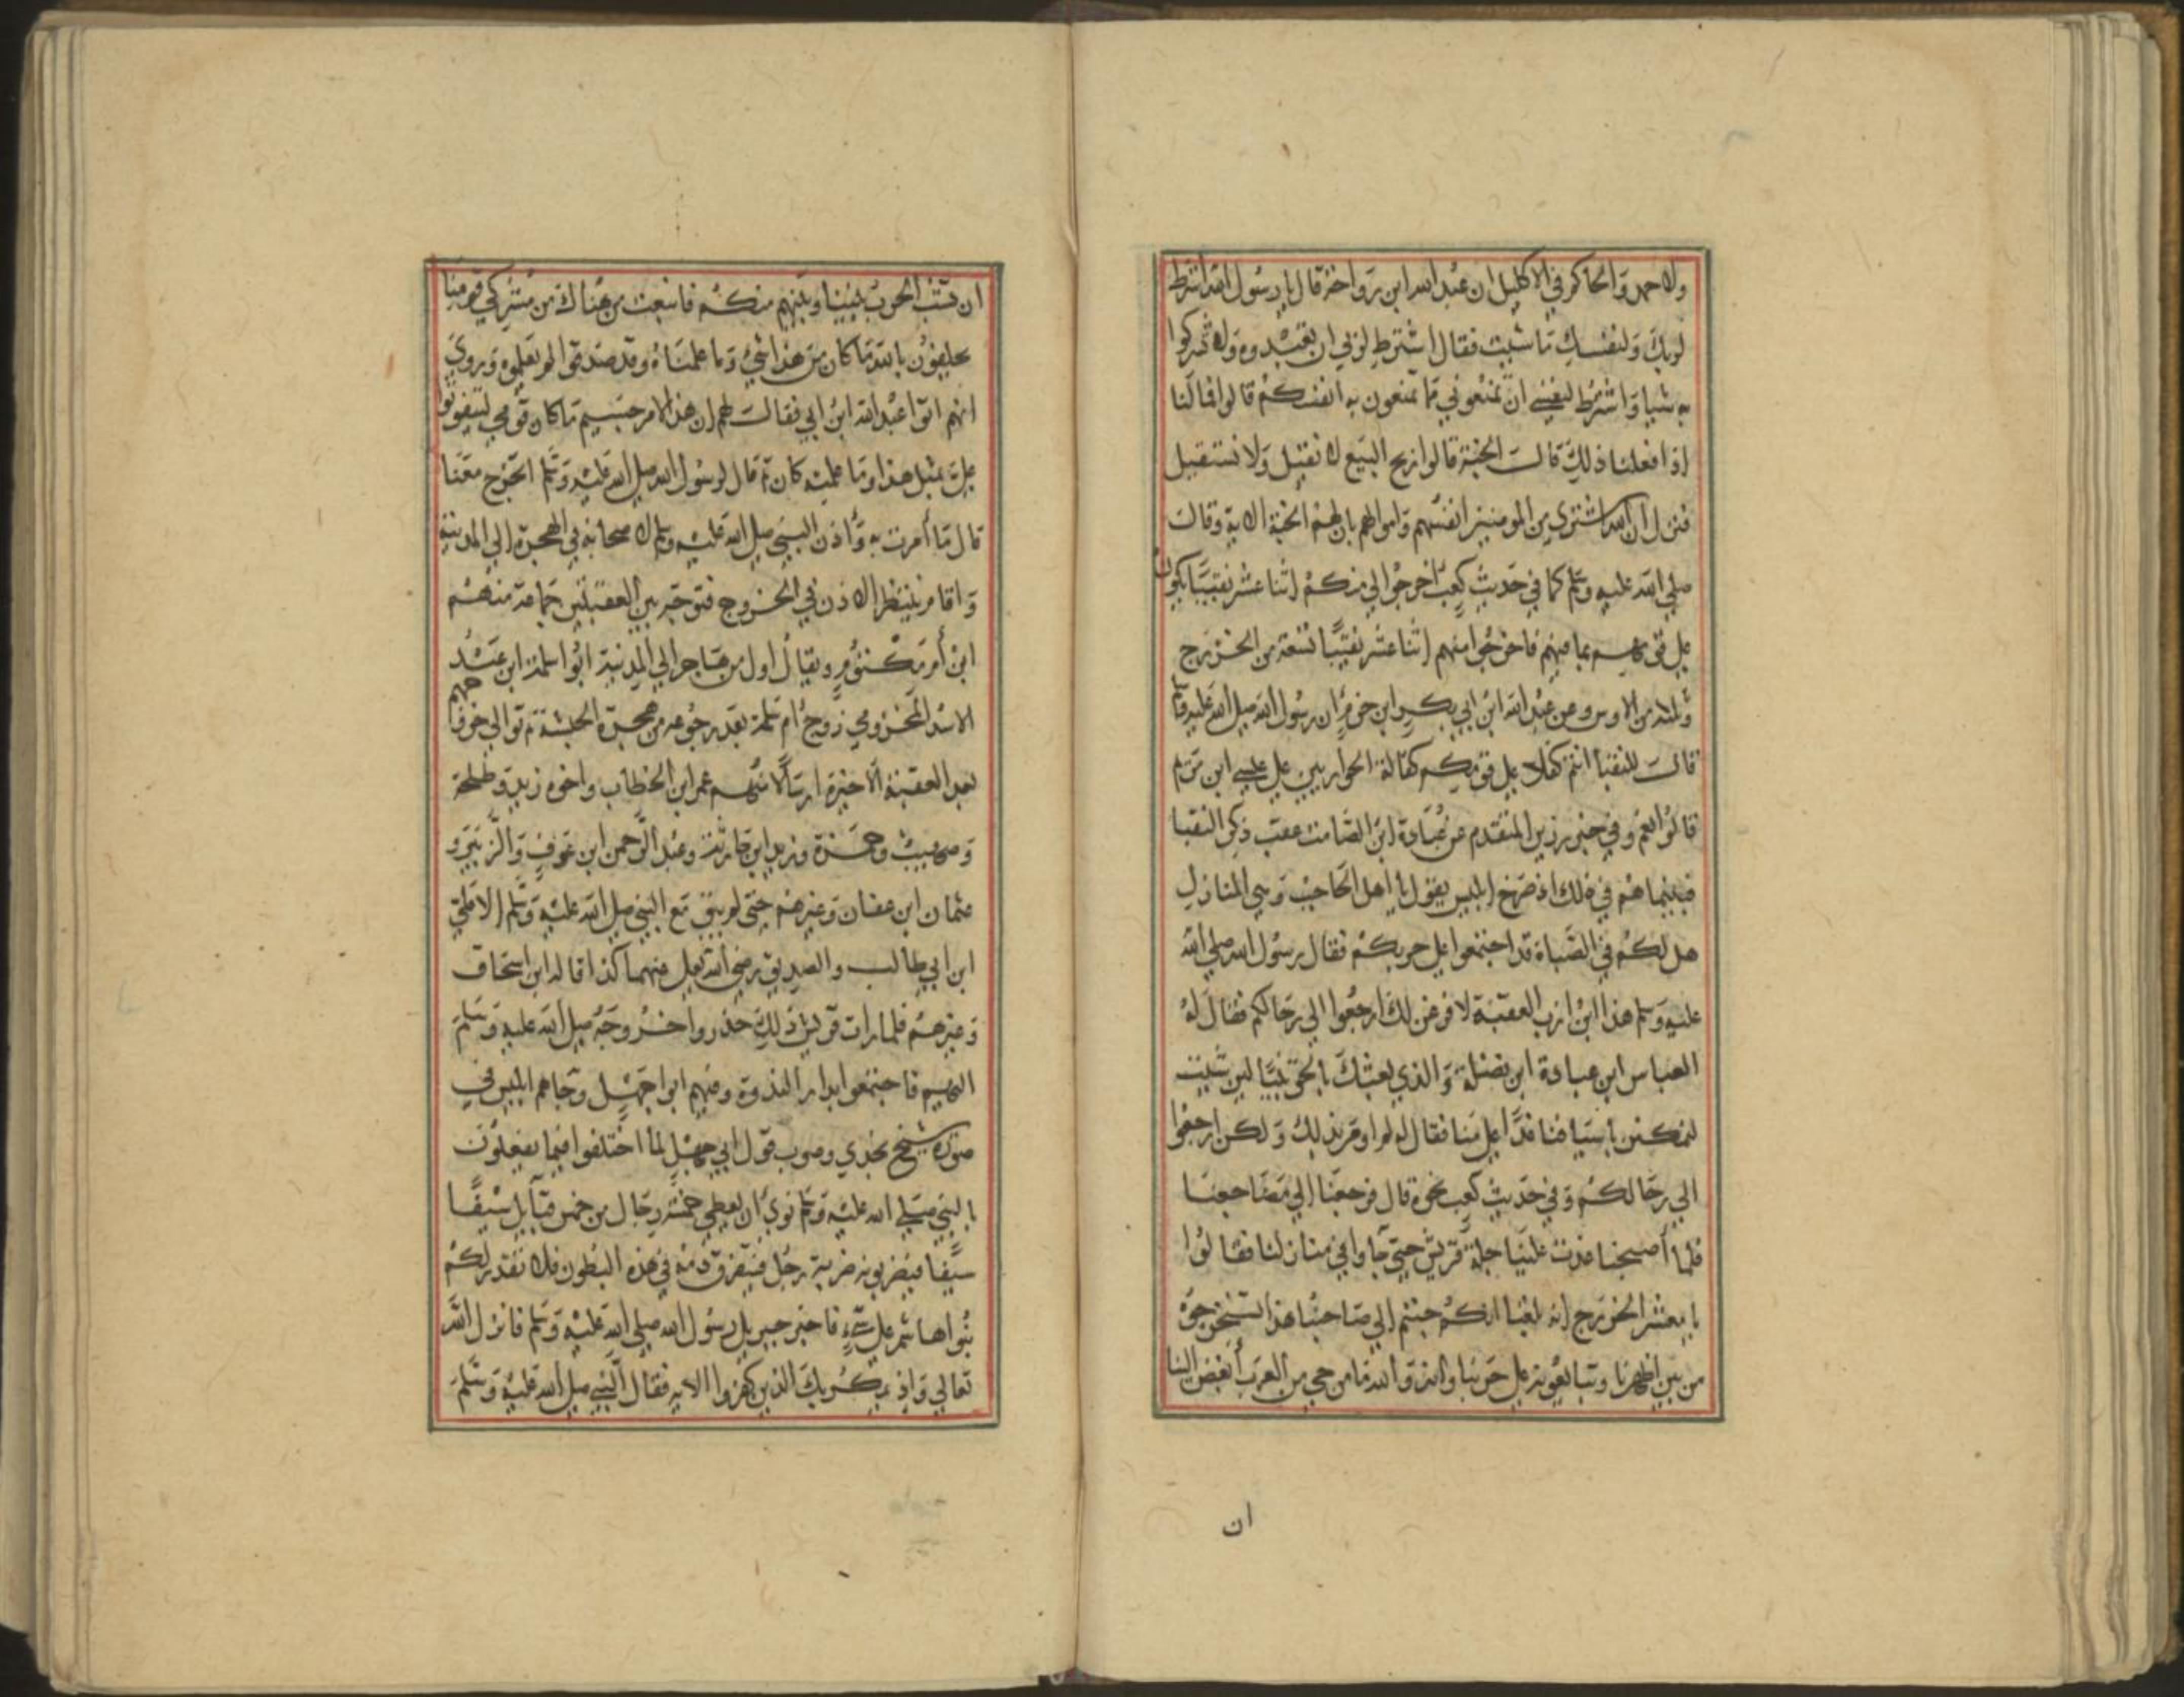 ولاحمد والحاكم في الاكليل ان عبد الله ابن رواحة قال يا رسول الله اشترط
لربك ولنفسك ما شيت فقال اشترط لربي ان تعبدوه ولا تشركوا
به شيا واشترط لنفسي ان تمنعوني مما تمنعون به انفسكم قالوا فما لنا
اذا فعلنا ذلك قال الجنة قالوا ربح البيع لا نقيل ولا نستقيل
فنزل ان الله اشترى من المومنين انفسهم واموالهم بان لهم الجنة الاية وقال
صلى الله عليه وسلم كما في حديث كعب اخرجوا الي منكم اثنا عشر نقيبا يكون
على قومهم بما فيهم فاخرجوا منهم اثنا عشر نقيبا تسعة من الخزرج
وثلثة من الاوس وعن عبد الله ابن ابي بكر ابن حزم ان رسول الله صلى الله عليه وسلم
قال للنقبا انتم كفلا على قومكم كفالة الحواريين على عيسى ابن مريم
قالوا نعم وفي خبر رزين المتقدم عن عبادة ابن الصامت عقب ذكر النقبا
فبينما هم في ذلك اذ صرخ ابليس يقول يا اهل الحاجب وهي المنازل
هل لكم في الصباة قد اجتمعوا على حربكم فقال رسول الله صلى الله
عليه وسلم هذا ابن ازب العقبة لافرغن لك ارجعوا الى رحالكم فقال له
العباس ابن عبادة ابن نضلة والذي بعثك بالحق نبيا لين شيت
لنمكنن باسيافنا غدا على منا فقال له لم اومر بذلك ولكن ارجعوا
الى رحالكم وفي حديث كعب نحوه قال فرجعنا الى مضاجعنا
فلما أصبحنا غدت علينا جلة قريش حتى جاوا في منازلنا فقالوا
يا معشر الخزرج انه بلغنا انكم جيتم الى صاحبنا هذا لتستخرجوه
من بين اظهرنا وتبايعونه على حربنا وانه والله ما من حي من العرب أبغض الينا
ان
ان تنشب الحرب بيننا وبينهم منكم فانبعث من هناك من مشركي قومنا
يحلفون بالله ما كان من هذا شيء وما علمناه وقد صدقوا لم يعلموه وروي
انهم اتوا عبد الله ابن ابي فقال لهم ان هذا لامر جسيم ما كان قومي ليتفوتوا
علي بمثل هذا وما علمته كان ثم قال لرسول الله صلى الله عليه وسلم اتخرج معنا
قال ما أمرت به وأذن النبي صلى الله عليه وسلم لاصحابه في الهجرة الى المدينة
واقام ينتظر الاذن في الخروج فتوجه بين العقبتين جماعة منهم
ابن أم مكتوم ويقال اول من هاجر الى المدينة ابوا سلمة ابن عبد
الاسد المخزومي زوج ام سلمة بعد رجوعه من هجرة الحبشة ثم توالى خروجهم
بعد العقبة الاخيرة ارسالا منهم عمر ابن الخطاب واخوه زيد وطلحة
وصهيب وحمزة وزيد ابن حارثة وعبد الرحمن ابن عوف والزبير و
عثمان ابن عفان وغيرهم حتى لم يبق مع النبي صلى الله عليه وسلم الا علي
ابن ابي طالب والصديق رضي الله تعالى عنهما كذا قاله ابن اسحاق
وغيرهم فلما رات قريش ذلك حذروا خروجه صلى الله عليه وسلم
اليهم فاجتمعوا بدار الندوة ومنهم ابوا جهل وجاهم ابليس في
صورة شيخ نجدي وصوب قول ابي جهل لما اختلفوا فيما يفعلون
بالنبي صلى الله عليه وسلم نرى أن يعطى خمسة رجال من خمس قبايل سيفا
سيفا فيضربونه ضربة رجل فيتفرق دمه في هذه البطون فلا تقدر لكم
بنوا هاشم على شيء فاخبر جبريل رسول الله صلى الله عليه وسلم فانزل الله
تعالى واذ يمكر بك الذين كفروا الايه فقال النبي صلى الله عليه وسلم